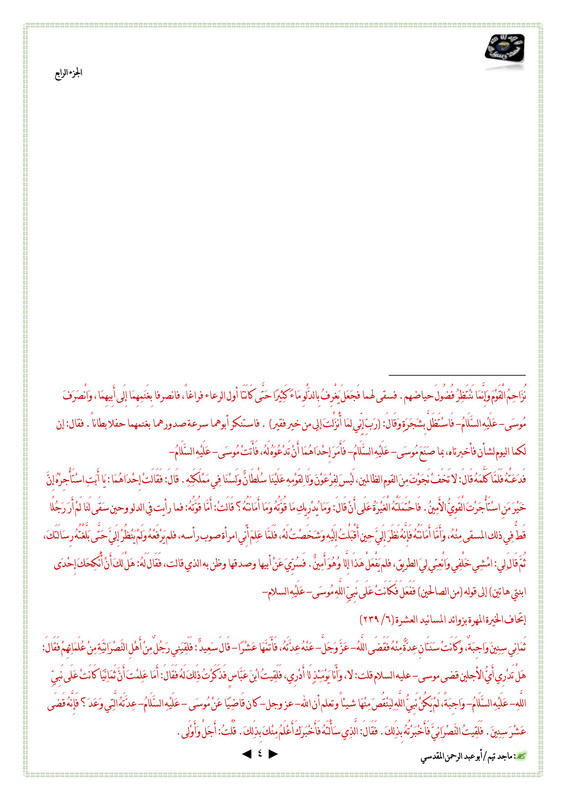 الجزء الرابع
نُزَاحِمُ الْقَوْمَ وَإِنَّمَا نَنْتَظِرُ فُضُولَ حياضهم . فسقى لهما فَجَعَلَ يَغْرِفُ بِالدَّلْوِ مَاءً كَثِيرًا حَتَّى كَانَتَا أول الرعاء فراغاً، فانصرفا بِغَنَمِهِمَا إِلَى أَبِيهِمَا، وَانْصَرَفَ
مُوسَى- عَلَيْهِ السَّلَامُ- فَاسْتَظَلَّ بِشَجَرَةٍ وقال: (رَبِّ إِنِّي لِمَا أَنْزَلْتَ إِلَيَّ مِنْ خير فقير) . فاستنكر أبوهما سرعة صدورهما بغنمهما حفلا بطاناً . فقال: إن
لكما اليوم لشأن فأخبرتاه، بما صَنَعَ مُوسَى- عَلَيْهِ السَّلَامُ- فَأَمَرَ إِحْدَاهُمَا أَنْ تَدْعُوَهُ لَهُ، فَأَتَتْ مُوسَى- عَلَيْهِ السَّلَامُ-
فَدَعَتْهُ فَلَمَّا كَلَّمَهُ قال: لا تخف نَجَوْتَ مِنَ القوم الظالمين، لَيْسَ لِفِرْعَوْنَ وَلَا لِقَوْمِهِ عَلَيْنَا سُلْطَانٌ وَلَسْنَا فِي مَمْلَكَتِهِ. قَالَ: فَقَالَتْ إِحْدَاهُمَا: يَا أَبَتِ اسْتَأْجِرْهُ إِنَّ
خَيْرَ مَنِ اسْتَأْجَرْتَ الْقَوِيُّ الأَمِينُ . فَاحْتَمَلَتْهُ الْغَيْرَةُ عَلَى أَنْ قال: وَمَا يُدْرِيكِ مَا قُوَّتُهُ وَمَا أَمَانَتُهُ؟ قالت: أَمَّا قُوَّتُهُ: فما رأيت في الدلو وحين سقى لنا لَمْ أَرَ رَجُلًا
قَطُّ فِي ذلك المسقى منه، وَأَمَّا أَمَانَتُهُ فَإِنَّهُ نَظَرَ إِلَيَّ حِينَ أَقْبَلْتُ إِلَيْهِ وَشَخَصْتُ لَهُ، فَلَمَّا عَلِمَ أَنِّي امرأة صوب رأسه، فلم يَرْفَعْهُ وَلَمْ يَنْظُرْ إِلَيَّ حَتَّى بَلَّغْتُهُ رِسَالَتَكَ،
ثُمَّ قَالَ لِي: امْشِي خَلْفِي وَانْعِتِي لِيَ الطريق، فلم يَفْعَلْ هَذَا إِلَّا وَهُوَ أَمِينٌ . فَسُرِّيَ عَنْ أبيها وصدقها وظن به الذي قالت، فقال لَهُ: هَلْ لَكَ أَنْ أُنْكِحَكَ إِحْدَى
ابنتي هاتين) إلى قوله (من الصالحين) فَفَعَلَ فَكَانَتْ عَلَى نَبِيِّ اللَّهِ مُوسَى- عَلَيْهِ السلام-
إتحاف الخيرة المهرة بزوائد المسانيد العشرة (٦/ ٢٣٩)
ثَمَانِي سِنِينَ وَاجِبَةً، وَكَانَتْ سَنَتَانِ عِدَةً مِنْهُ فَقَضَى اللَّهُ- عَزَّ وَجَلَّ- عَنْهُ عِدَتَهُ، فَأَتَمَّهَا عَشْرًا- قال سَعِيدٌ: فَلَقِيَنِي رَجُلٌ مِنْ أَهْلِ النَّصْرَانِيَّةِ مِنْ عُلَمَائِهِمْ فَقَالَ:
هَلْ تَدْرِي أَيَّ الْأَجَلَيْنِ قضى موسى- عليه السلام قلت: لا، وَأَنَا يَوْمَئِذٍ لَا أَدْرِي، فَلَقِيتُ ابْنَ عَبَّاسٍ فَذَكَرْتُ ذلك لَهُ فَقَالَ: أَمَا عَلِمْتَ أَنَّ ثَمَانِيًا كَانَتْ عَلَى نَبِيِّ
اللَّهِ- عَلَيْهِ السَّلَامُ- وَاجِبَةً، لَمْ يَكُنْ نَبِيُّ اللَّهِ لِيَنْقُصَ مِنْهَا شيئاً وتعلم أن الله- عز وجل- كان قاضيًا عَنْ مُوسَى- عَلَيْهِ السَّلَامُ- عِدَتَهُ الَّتِي وَعَدَ؟ فَإِنَّهُ قَضَى
عَشْرَ سِنِينَ . فَلَقِيتُ النَّصْرَانِيَّ فَأَخْبَرْتُهُ بِذَلِكَ . فَقَالَ: الَّذِي سَأَلْتَهُ فَأَخْبَرَكَ أَعْلَمُ مِنْكَ بِذَلِكَ . قُلْتُ: أَجَلْ وَأَوْلَى .
: ماجد تيم / أبو عبد الرحمن المقدسي
٤